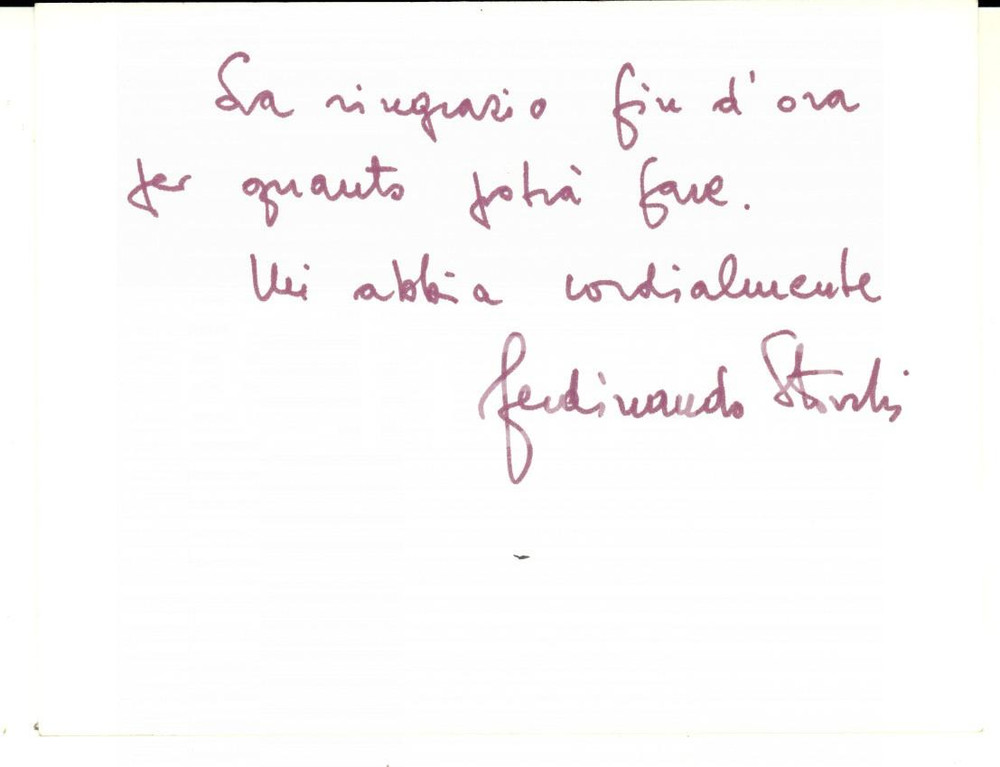 La ringrazio fin d'ora
per quanto potrà fare.
Mi abbia cordialmente
Ferdinando